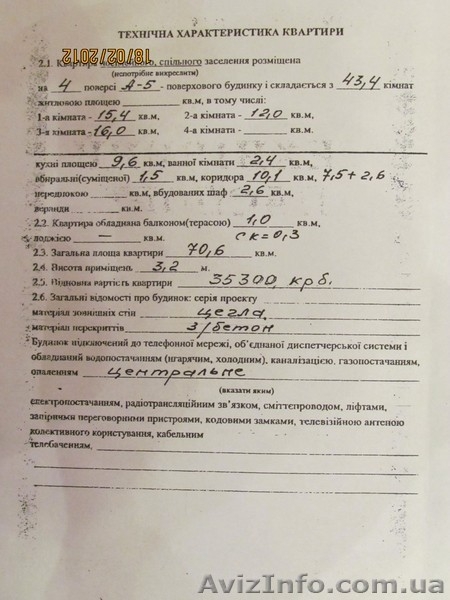 18/02/2012
ТЕХНІЧНА ХАРАКТЕРИСТИКА КВАРТИРИ
2.1. Квартира спільного заселення розміщена
(непотрібне викреслити)
на 4 поверсі А-5 - поверхового будинку і складається з 43,4 кімнат
житловою площею кв.м, в тому числі:
1-а кімната - 15,4 кв.м, 2-а кімната - 12,0 кв.м,
3-я кімната - 16,0 кв.м, 4-а кімната - кв.м,
кухні площею 9,6 кв.м, ванної кімнати 2,4 кв.м,
вбиральні(суміщеної) 1,5 кв.м, коридора 10,1 кв.м, 7,5+2,6
передпокою кв.м, вбудованих шаф 2,6 кв.м,
веранди кв.м.
2.2. Квартира обладнана балконом(терасою) 1,0 кв.м,
лоджією — кв.м. ск=0,3
2.3. Загальна площа квартири 70,6 кв.м.
2.4. Висота приміщень 3,2 м.
2.5. Відновна вартість квартири 35300 крб.
2.6. Загальні відомості про будинок: серія проекту
матеріал зовнішніх стін цегла
матеріал перекриттів з/бетон
Будинок підключений до телефонної мережі, об'єднаної диспетчерської системи і
обладнаний водопостачанням (нгарячим, холодним), каналізацією, газопостачанням,
опаленням центральне
(вказати яким)
електропостачанням, радіотрансляційним зв'язком, сміттєпроводом, ліфтами,
запірними переговорними пристроями, кодовими замками, телевізійною антеною
колективного користування, кабельним
телебаченням,
AvizInfo.com.ua